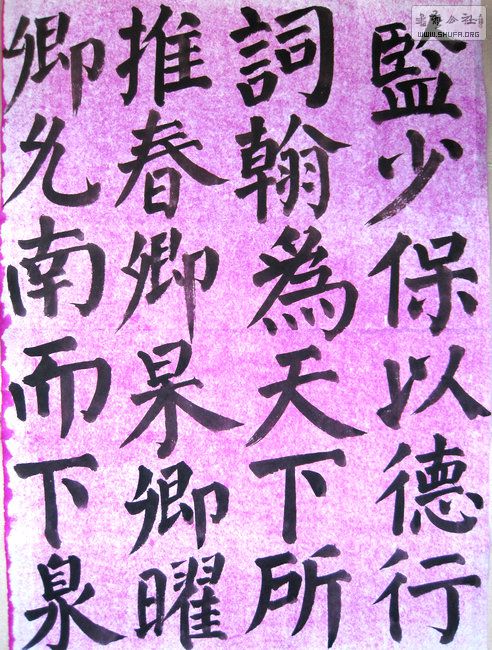 監少保以德行
詞翰為天下所
推春卿杲卿曜
卿允南而下臮
公社
WWW.SHUFA.ORG